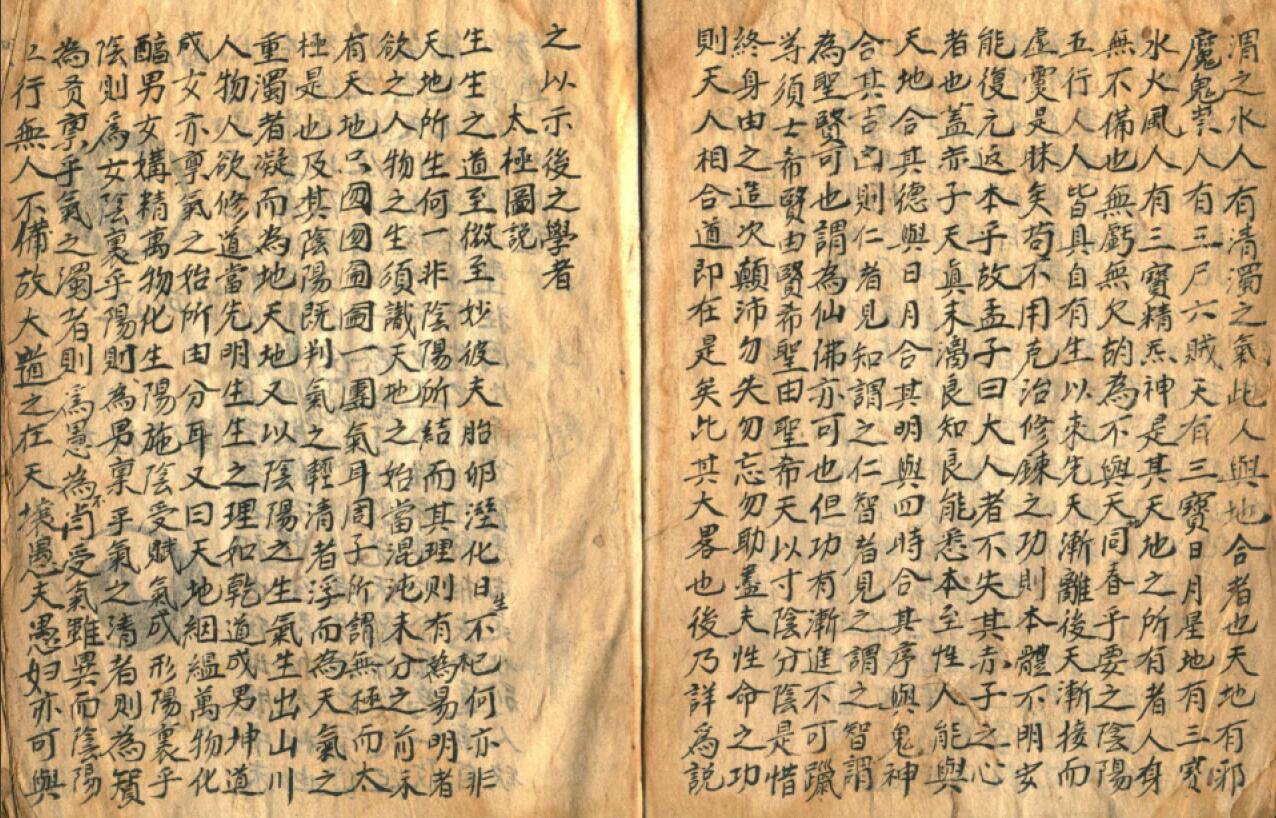 渭之水人有清濁之氣此人與地合者也天地有邪
魔鬼祟人有三尸六賊天有三寶日月星地有三寶
水火風人有三寶精炁神是其天地之所有者人身
無不備也無虧無欠胡為不與天同春乎要之陰陽
五行人人皆具自有生以來先天漸離後天漸接而
虛靈是昧矣苟不用克治修鍊之功則本體不明安
能復元返本乎故孟子曰大人者不失其赤子之心
者也蓋赤子天真未漓良知良能悉本至性人能與
天地合其德與日月合其明與四時合其序與鬼神
合其吉凶則仁者見知謂之仁智者見之謂之智謂
為聖賢可也謂為仙佛亦可也但功有漸進不可躐
等須士希賢由賢希聖由聖希天以寸陰分陰是惜
終身由之造次顛沛勿失勿忘勿助盡夫性命之功
則天人相合道即在是矣此其大畧也後乃詳為說
之以示後之學者
太極圖說
生生之道至微至妙彼夫胎卵溼化日生不杞何亦非
天地所生何一非陰陽所結而其理則有為易明者
欲之人物之生須識天地之始當混沌未分之前未
有天地只囫囫圇圇一團氣耳周子所謂無極而太
極是也及其陰陽既判氣之輕清者浮而為天氣之
重濁者凝而為地天地又以陰陽之生氣生出山川
人物人欲修道當先明生生之理如乾道成男坤道
成女亦稟氣之始所由分耳又曰天地絪縕萬物化
醕男女媾精萬物化生陽施陰受賦氣成形陽裏乎
陰則為女陰裏乎陽則為男稟乎氣之清者則為賢
為貢稟乎氣之濁者則為愚為不肖受氣雖異而陰陽
五行無人不備故大道之在天壤愚夫愚妇亦可與